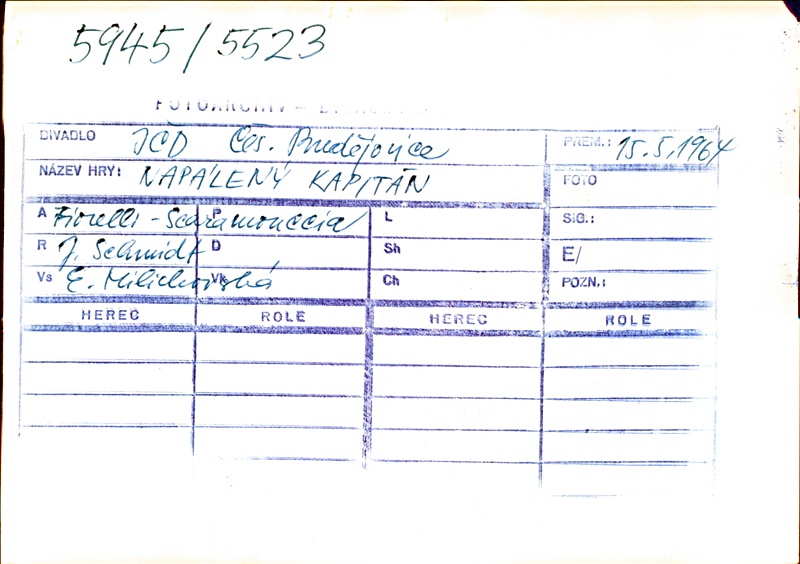 5945/5523
FOTOARCHIV –
DIVADLO JČD Čes. Budějovice PREM.: 15.5.1964
NÁZEV HRY: NAPÁLENÝ KAPITÁN FOTO
A Fiorelli-Scaramouccia P L SIG.:
R J. Schmidt D Sh E/
Vs E. Milichovská Vk Ch POZN.:
HEREC ROLE HEREC ROLE